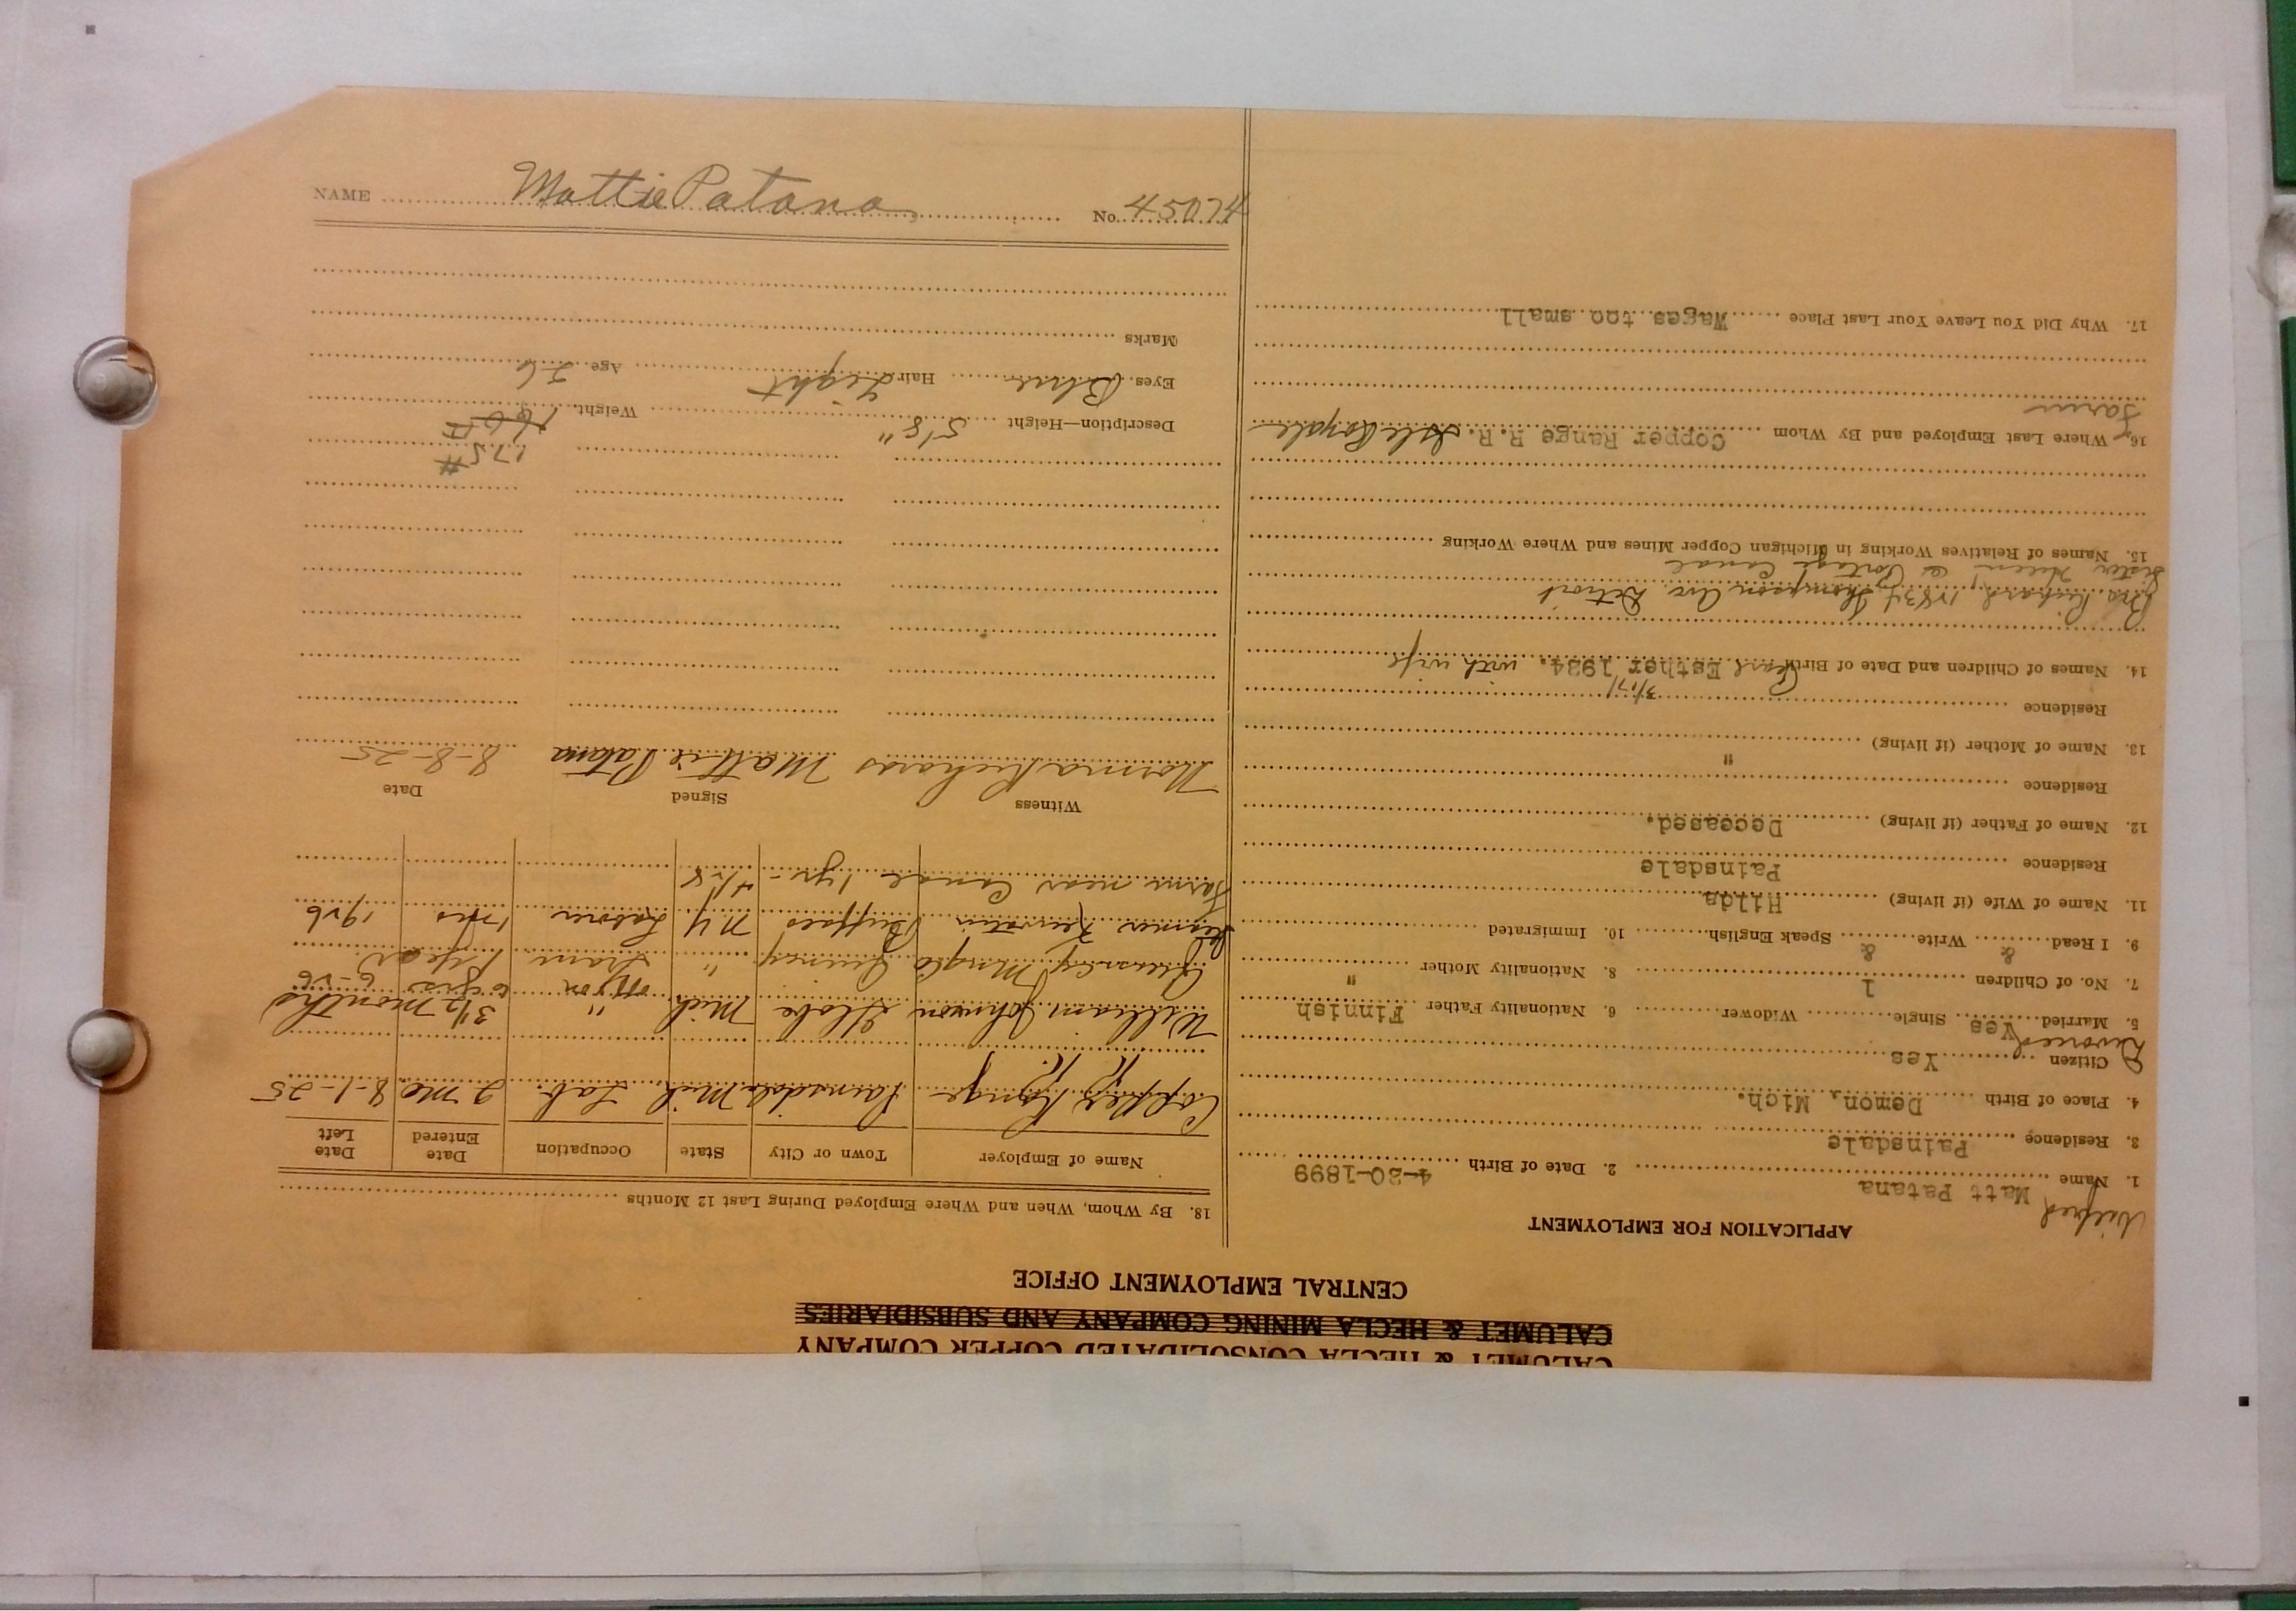 CALUMET & HECLA CONSOLIDATED COPPER COMPANY
CALUMET & HECLA MINING COMPANY AND SUBSIDIARIES
CENTRAL EMPLOYMENT OFFICE
APPLICATION FOR EMPLOYMENT
Wilfred
1. Name Matt Patana 2. Date of Birth 4-20-1899
3. Residence Painsdale
4. Place of Birth Demon, Mich.
Citizen Yes
Divorced
5. Married Yes Single Widower 6. Nationality Father Finnish
7. No. of Children 1 8. Nationality Mother "
9. I Read & Write & Speak English 10. Immigrated
11. Name of Wife (if living) Hilda
Residence Painsdale
12. Name of Father (if living) Deceased.
Residence
13. Name of Mother (if living) "
Residence
3/17/
14. Names of Children and Date of Birth Pearl Esther 1924. with wife
Bro Richard 11834 Thompson Ave. Detroit
Sister Portage Canal
15. Names of Relatives Working in Michigan Copper Mines and Where Working
16. Where Last Employed and By Whom Copper Range R. R. Isle Royale
Farm
17. Why Did You Leave Your Last Place Wages too small
18. By Whom, When and Where Employed During Last 12 Months
Name of Employer Town or City State Occupation Date Entered Date Left
Copper Range Painsdale Mich Lab. 2 mo 8-1-25
R. R.
William Johnson Mich. " 3 1/2 months
Quincy Quincy " Tram 1 year
Buffalo N.Y Laborer 1926
Farm near Canal 1 yr -
Witness Signed Date
Norma Richards Mattie Patana 8-8-25
175#
Description—Height 5'8" Weight 165
Eyes Blue Hair Light Age 26
Marks
NAME Mattie Patana No. 45074